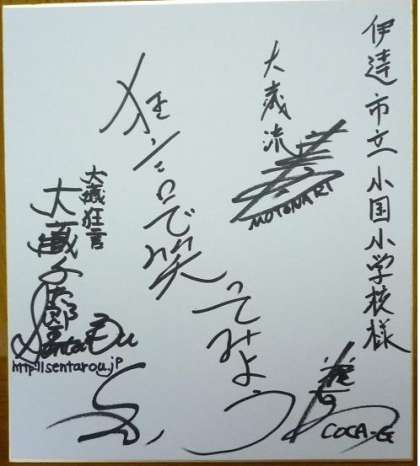 伊達市立小国小学校様
大蔵流
MOTONARI
狂言で笑ってみよう
大蔵狂言
大蔵千太郎
SentaRou
http://sentarou.jp
COCA-G